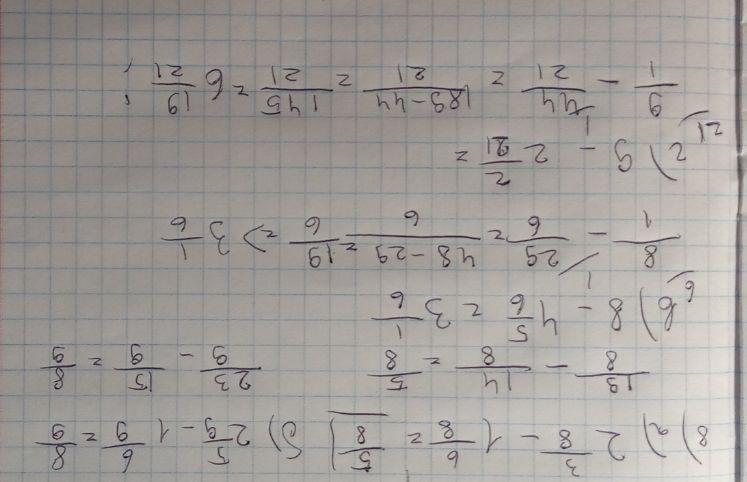 8) а) 2 3/8 - 1 6/8 = 5/8 б) 2 5/9 - 1 6/9 = 8/9
19/8 - 14/8 = 5/8 23/9 - 15/9 = 8/9
в) 8 - 4 5/6 = 3 1/6
6 1
8/1 - 29/6 = 48-29/6 = 19/6 => 3 1/6
г) 9 - 2 2/21 =
21 1
9/1 - 44/21 = 189-44/21 = 145/21 = 6 19/21;